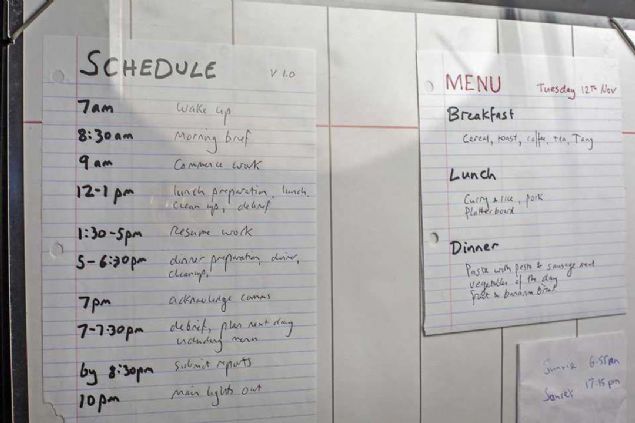 SCHEDULE
V 1.0
7am Wake up
8:30am Morning brief
9am Commence work
12-1pm lunch preparation, lunch.
clean up, debrief
1:30-5pm Resume work
5-6:30pm dinner preparation, dinner,
cleanup,
7pm acknowledge comms
7-7:30pm debrief, plan next day
including menu
by 8:30pm Submit reports
10pm Main lights out
MENU
Tuesday 12TH Nov
Breakfast
Cereal, toast, coffee, tea, Tang
Lunch
Curry & rice, pork
Platter board
Dinner
Pasta with pesto & sausage and
vegetables of the day
Fruit & banana
Sunrise 6:55am
Sunset 17:15pm